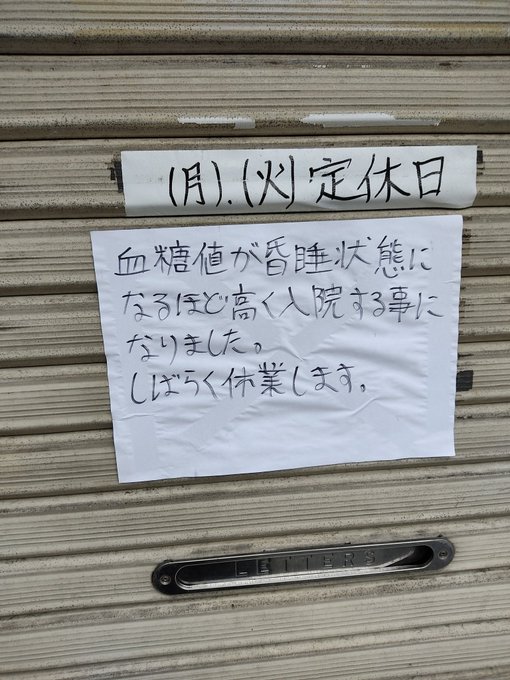 (月).(火)定休日
血糖値が昏睡状態に
なるほど高く入院する事に
なりました。
しばらく休業します。
LETTERS